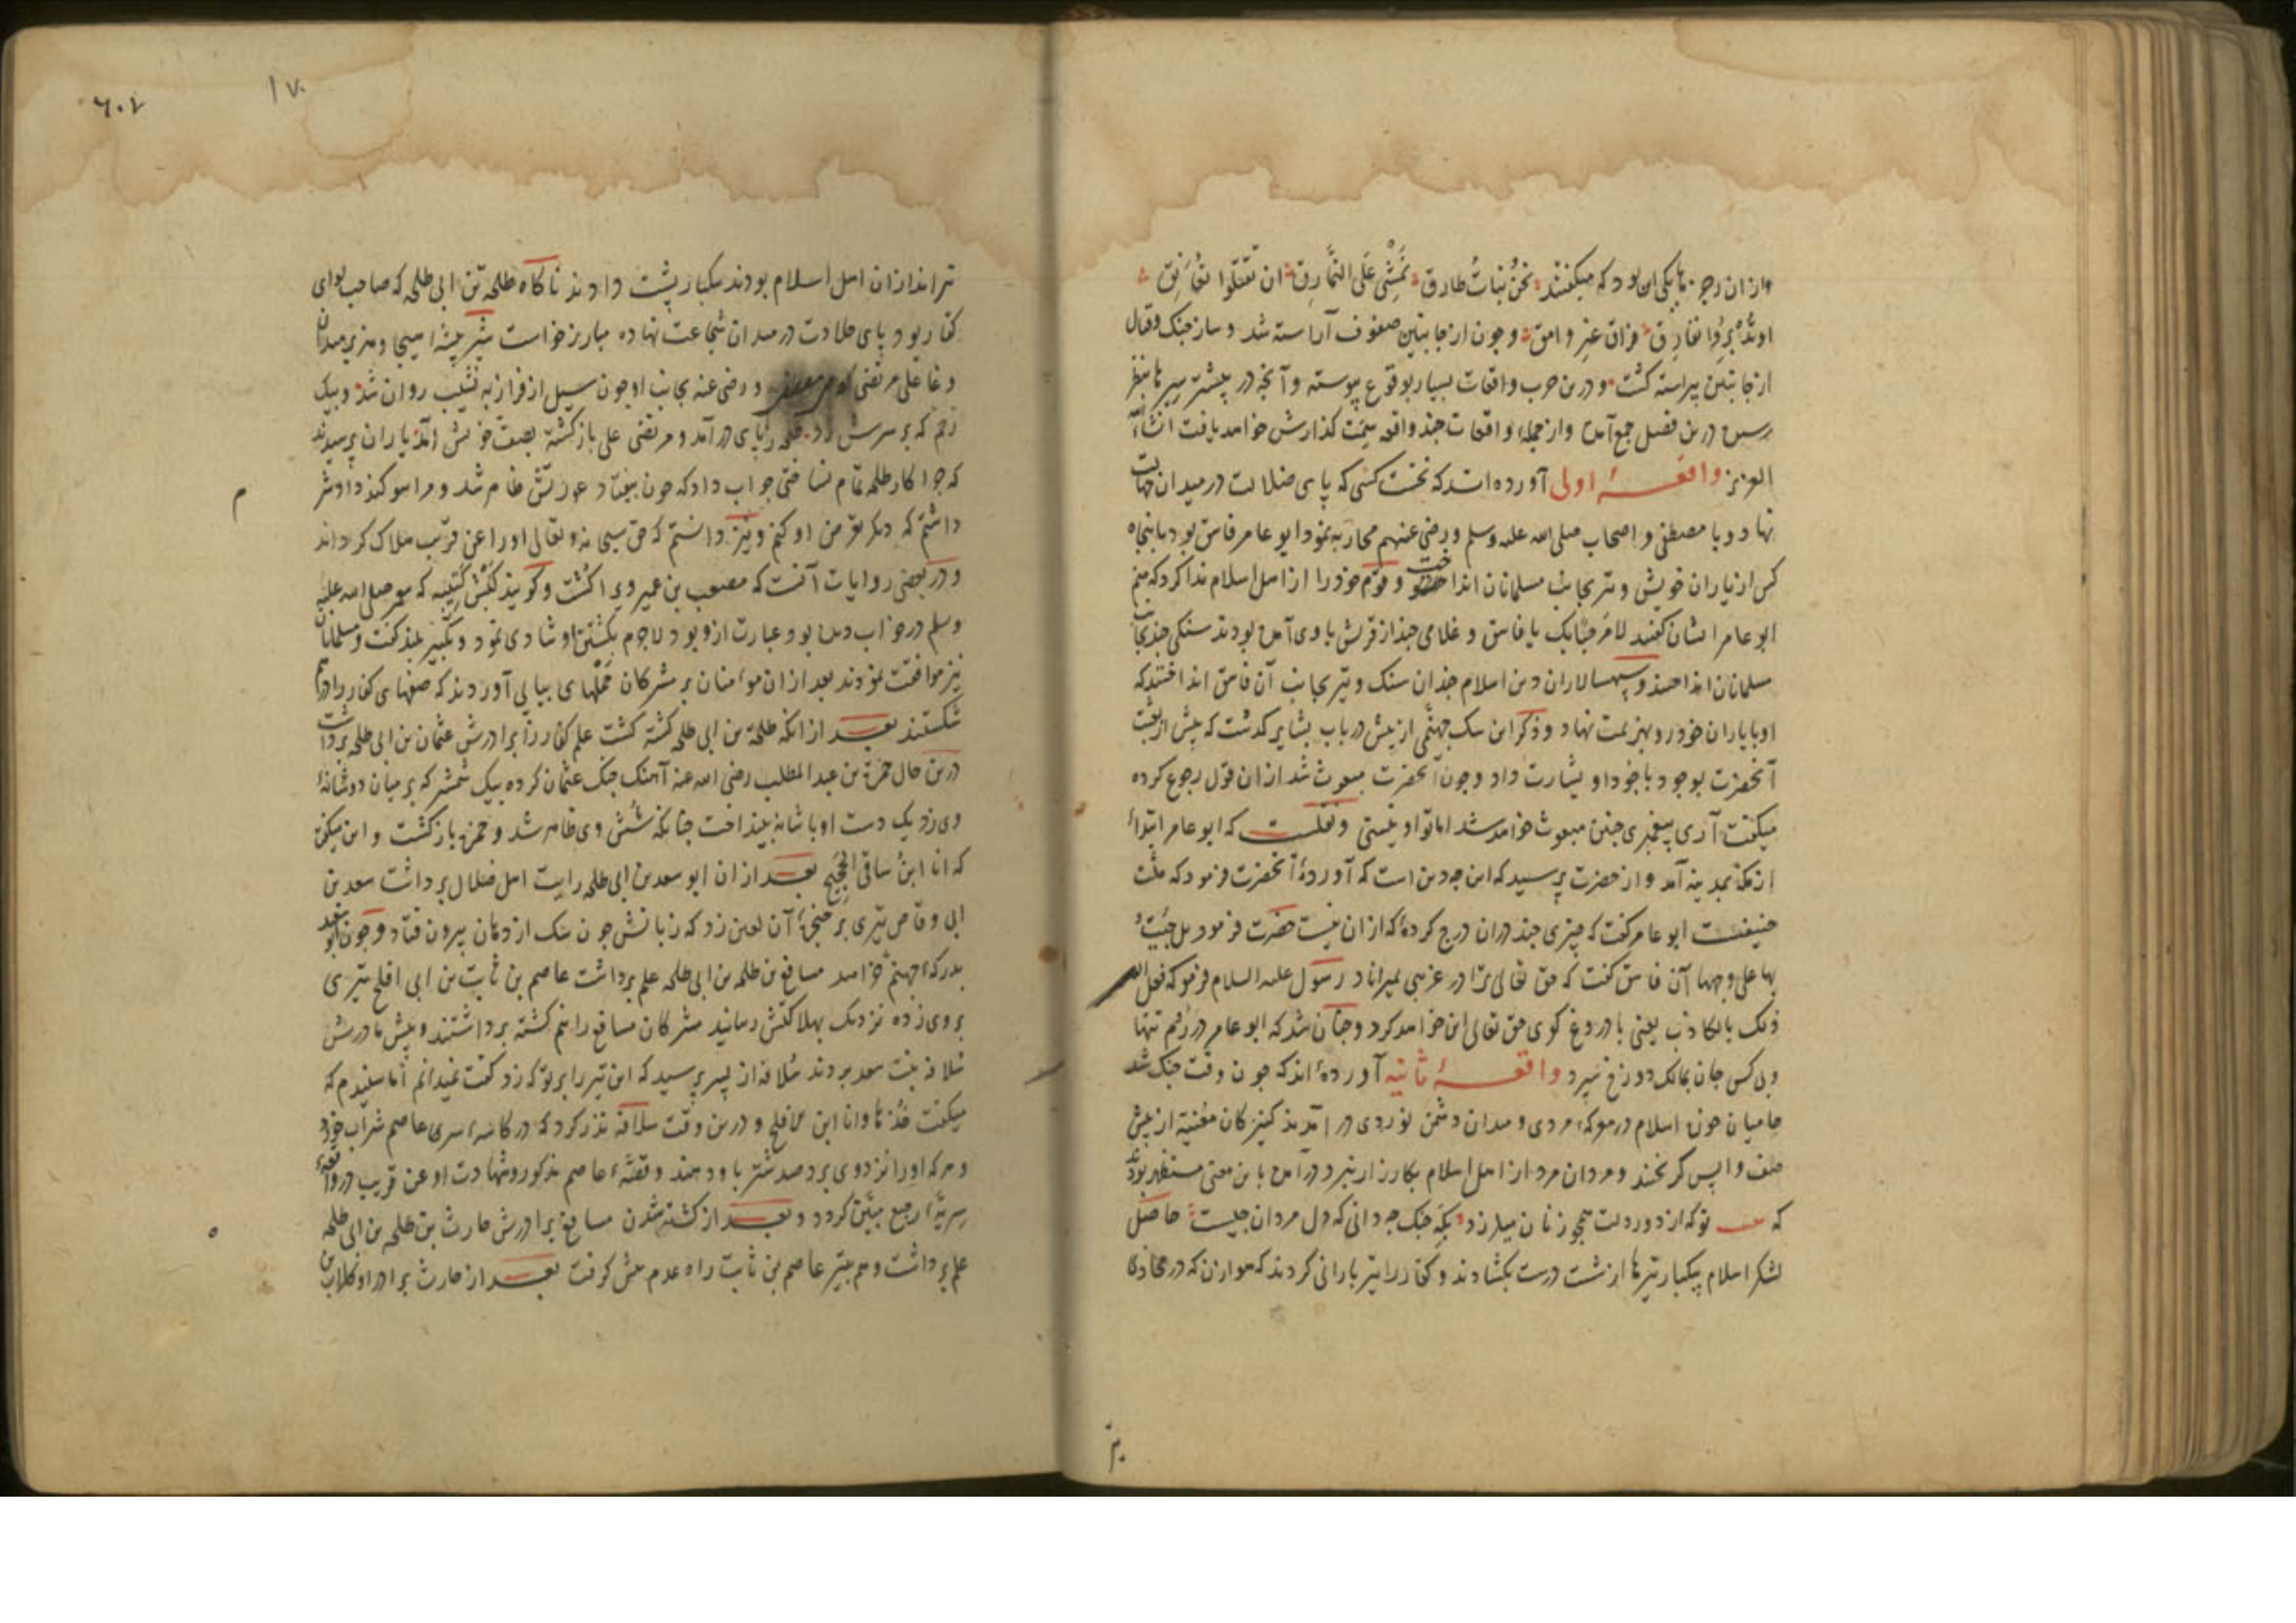 وازان رجزها یکی این بود که میکفتند نحن بنات طارق نمشی علی النمارق ان تقتلوا نعانق
او تدبروا نفارق فراق غیر وامق و چون از جانبین صفوف آراسته شد و ساز جنک و قتال
از جانبین پیراسته کشت و درین حرب واقعات بسیار بوقوع پیوسته و آنچه در بیشتر سیرها بنظر
رسیده درین فصل جمع آمده و از جمله واقعات چند واقعه سمت کذارش خواهد یافت انشاالله
العزیز واقعه اولی آورده اند که نخست کسی که پای ضلالت در میدان جهالت
نهاد و با مصطفی و اصحاب صلی الله علیه وسلم و رضی عنهم محاربه نمود ابو عامر فاسق بود با پنجاه
کس از یاران خویش و تیر بجانب مسلمانان انداخت و قوم خود را از اهل اسلام ندا کرد که منم
ابو عامر ایشان کفتند لا مرحبا بک یا فاسق و غلامی چند از قریش با وی آمده بودند سنکی چند بجانب
مسلمانان انداختند و سپهسالاران دین اسلام چندان سنک و تیر بجانب آن فاسق انداختند که
او با یاران خود رو بهزیمت نهاد و ذکر این سک جهنمی ازپیش در باب بشایر کذشت که پیش از بعثت
آنحضرت بوجود باجود او بشارت داد و چون آنحضرت مبعوث شد ازان قول رجوع کرده
میکفت آری پیغمبری چنین مبعوث خواهد شد اما تو او نیستی و نقلست که ابو عامر ابتداء
از مکه بمدینه آمد و از حضرت پرسید که این چه دین است که آورده آنحضرت فرمود که ملت
حنیفست ابو عامر کفت که چیزی چند دران درج کرده که ازان نیست حضرت فرمود بل جئت
بها علی وجهها آن فاسق کفت که حق تعالی ترا در غریبی بمیراناد رسول علیه السلام فرمود که فعل الله
ذلک بالکاذب یعنی با دروغ کوی حق تعالی این خواهد کرد و چنان شد که ابو عامر در روم تنها
و بی کس جان بمالک دوزخ سپرد واقعه ثانیه آورده اند که چون وقت جنک شد
حامیان حوزه اسلام در معرکه مردی و میدان دشمن نوردی در آمدند کنیزکان مغنیه از پیش
صف واپس کریختند و مردان مرد از اهل اسلام بکارزار نبرد درآمده باین معنی مستظهر بودند
که تو که از دور دلت همچو زنان میلرزد بکه جنک چه دانی که دل مردان چیست حاصل
لشکر اسلام بیکبار تیرها از شست درست بکشادند و کفار را تیر بارانی کردند که هوازن که در محاذی
تیراندازان اهل اسلام بودند بیکبار پشت دادند ناکاه طلحة بن ابی طلحه که صاحب لوای
کفار بود پای جلادت در میدان شجاعت نهاده مبارز خواست شیر بیشه هیجا و هزبر میدان
وغا علی مرتضی و رضی عنه بجانب او چون سیل از فراز به نشیب روان شد و بیک
زخم که بر سرش زد طلحه ز پای درآمد و مرتضی علی بازکشته بصف خویش آمد یاران پرسیدند
که چرا کار طلحه تمام نساختی جواب داد که چون بیفتاد عورتش ظاهر شد و مرا سوکند داد شرم
داشتم که دیکر تعرض او کنم و نیز دانستم که حق سبحانه و تعالی او را عن قریب هلاک کرداند
و در بعضی روایات آنست که مصعب بن عمیر ویرا کشت و کویند کبش کتیبه که پیغمبر صلی الله علیه
وسلم در خواب دیده بود عبارت ازو بود لاجرم بکشتن او شادی نمود و تکبیر بلند کفت و مسلمانان
نیز موافقت نمودند بعد ازان مومنان بر مشرکان حملهای پیاپی آوردند که صفهای کفار را درهم
شکستند بعد ازانکه طلحة بن ابی طلحه کشته کشت علم کفار را برادرش عثمان بن ابی طلحه برداشت
درین حال حمزة بن عبد المطلب رضی الله عنه آهنک جنک عثمان کرده بیک شمشیر که بر میان دو شانه
وی زد یک دست او با شانه بینداخت چنانکه شش وی ظاهر شد و حمزه بازکشت و این میکفت
که انا ابن ساقی الحجیج بعد ازان ابو سعد بن ابی طلحه رایت اهل ضلال برداشت سعد بن
ابی وقاص تیری بر حنجره آن لعین زد که زبانش چون سک از دهان بیرون فتاد و چون ابو سعد
بدرکه جهنم خرامید مسافع بن طلحه بن ابی طلحه علم برداشت عاصم بن ثابت بن ابی افلح تیری
بر وی زده نزدیک بهلاکتش رسانید مشرکان مسافع را نیم کشته برداشتند و پیش مادرش
سلافه بنت سعد بردند سلافه از پسر پرسید که این تیر را بر تو که زد کفت نمیدانم اما شنیدم که
میکفت خذها وانا ابن الافلح و درین وقت سلافه نذر کرد که در کاسه سر عاصم شراب خورد
و هر که او را نزد وی برد صد شتر باو دهند و قصه عاصم مذکور و شهادت او عن قریب در واقعه
سریه رجیع مبین کردد و بعد از کشته شدن مسافع برادرش حارث بن طلحه بن ابی طلحه
علم برداشت و هم بتیر عاصم بن ثابت راه عدم پیش کرفت بعد از حارث برادر او کلاب بن